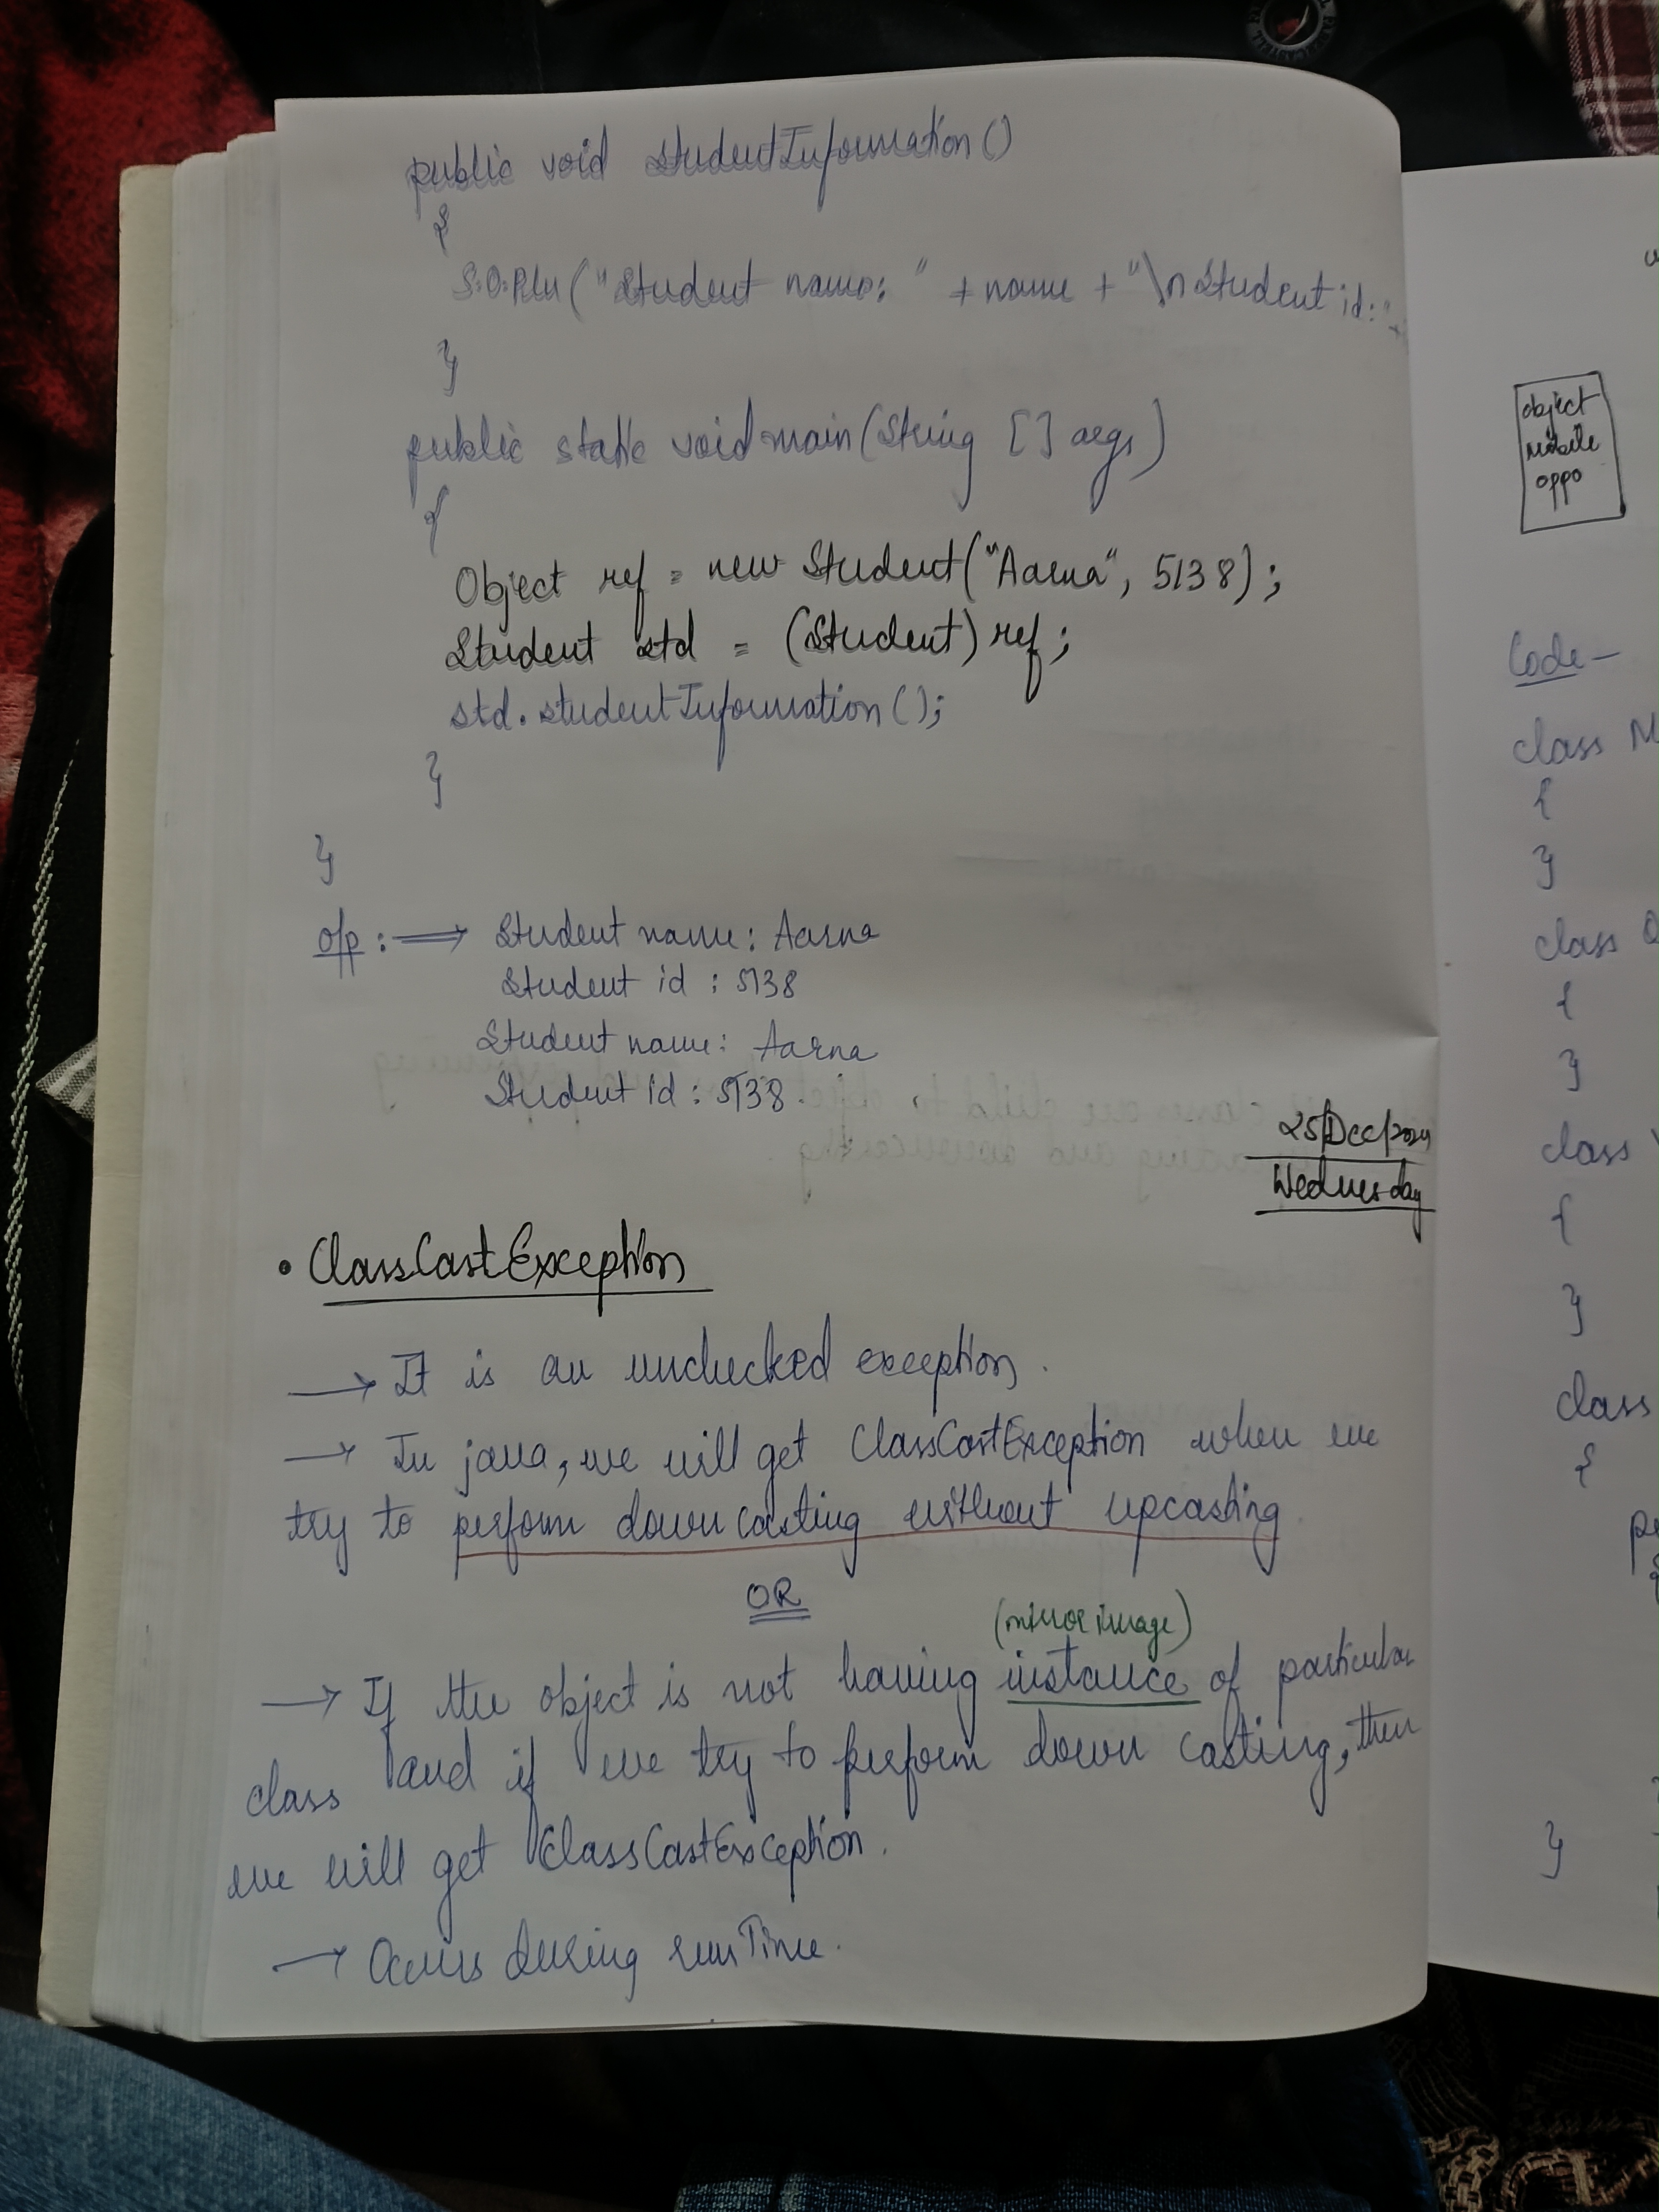 public void studentInformation()
{
S.O.Pln("Student name: " + name + "\n Student id:"+
}
public static void main(String [] args)
{
Object ref = new Student("Aarna", 5138);
Student std = (Student) ref;
std.studentInformation();
}
}
o/p :⟹ Student name: Aarna
Student id : 5138
Student name: Aarna
Student id : 5138.
25/Dec/2024
Wednesday
• ClassCastException
→ It is an unchecked exception.
→ In java, we will get ClassCastException when we
try to perform down casting without upcasting
OR
(mirror image)
→ If the object is not having instance of particular
class and if we try to perform down casting, then
we will get ClassCastException.
→ Occurs during runTime.
object
Mobile
oppo
Code –
class M
{
}
class O
{
}
class
{
}
class
{
}